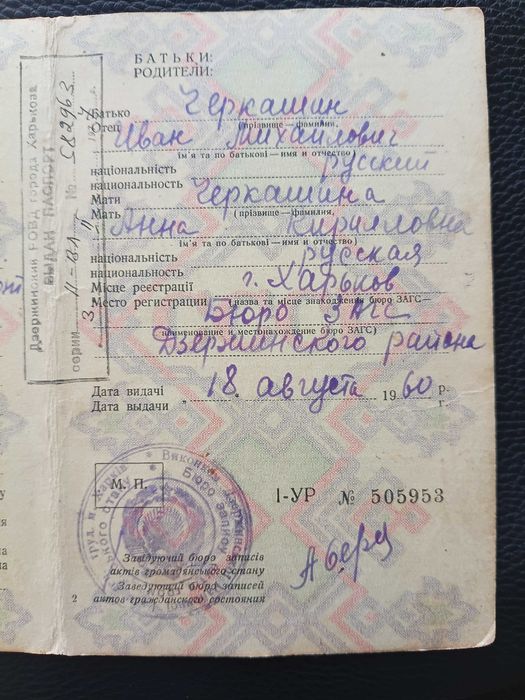 БАТЬКИ:
РОДИТЕЛИ:
Батько
Отец
Черкашин
(прізвище — фамилия,
Иван Михайлович
ім'я та по батькові—имя и отчество)
національність
национальность
русский
Мати
Мать
Черкашина
(прізвище — фамилия,
Анна Кирилловна
ім'я та по батькові—имя и отчество)
національність
национальность
русская
Місце реєстрації
Место регистрации
г. Харьков
(назва та місце знаходження бюро ЗАГС—
Бюро ЗАГС
наименование и местонахождение бюро ЗАГС)
Дзержинского района
Дата видачі
Дата выдачи
18. августа 1960 р.
г.
М. П.
I-УР № 505953
Завідуючий бюро записів
актів громадянського стану
Заведующий бюро записей
актов гражданского состояния
2
Дзержинский РОВД города Харькова
ВЫДАН ПАСПОРТ
серии № 582963
Виконком Дзержинс
Бюро запис
труд. м. Харків